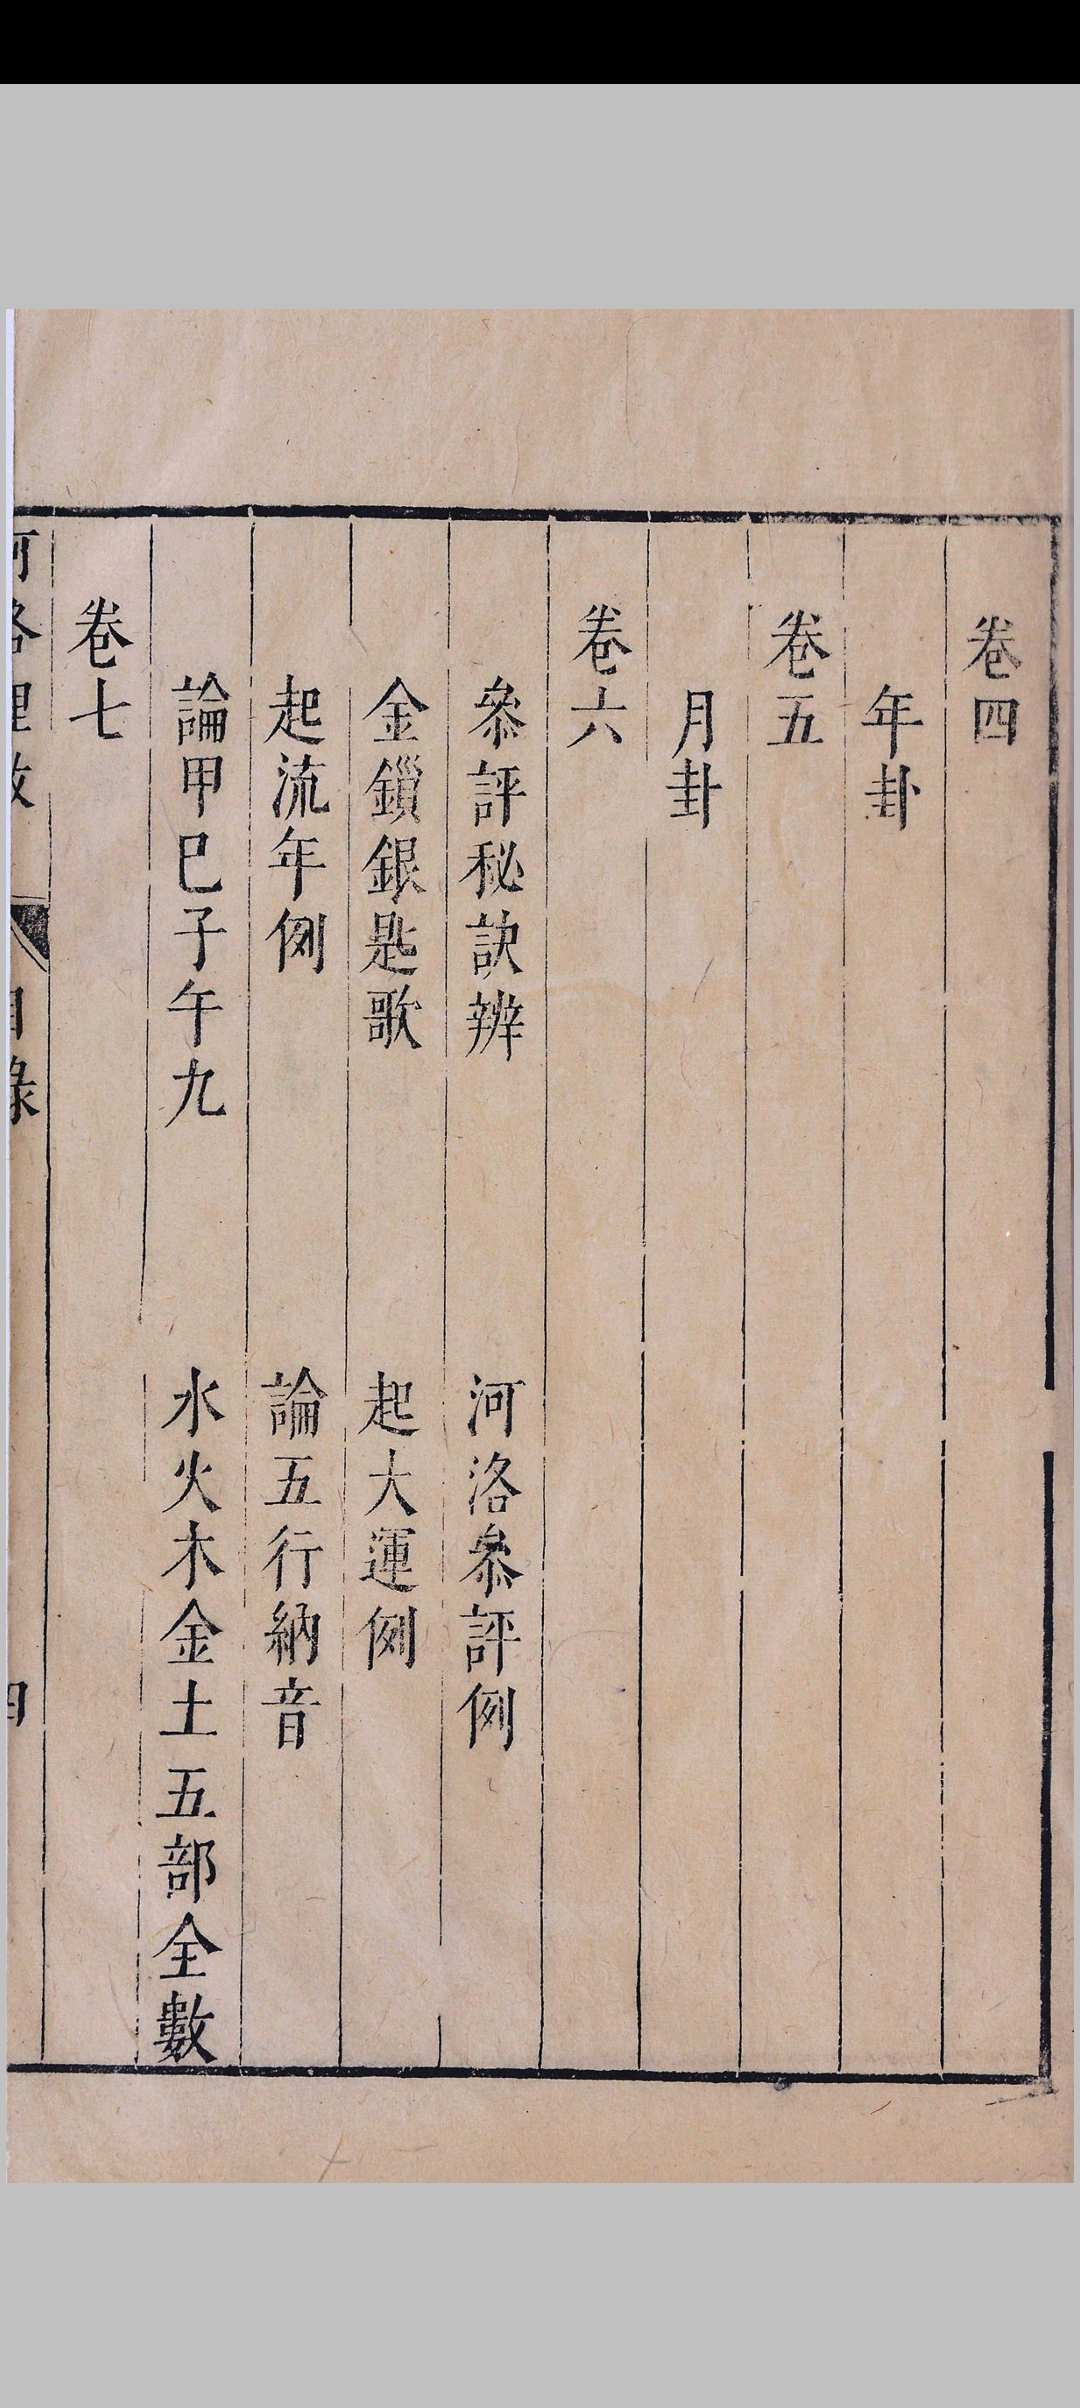 卷四
年卦
卷五
月卦
卷六
叅評秘訣辨 河洛叅評例
金鎖銀匙歌 起大運例
起流年例 論五行納音
論甲巳子午九 水火木金土五部全數
卷七
河洛理數 目錄 四